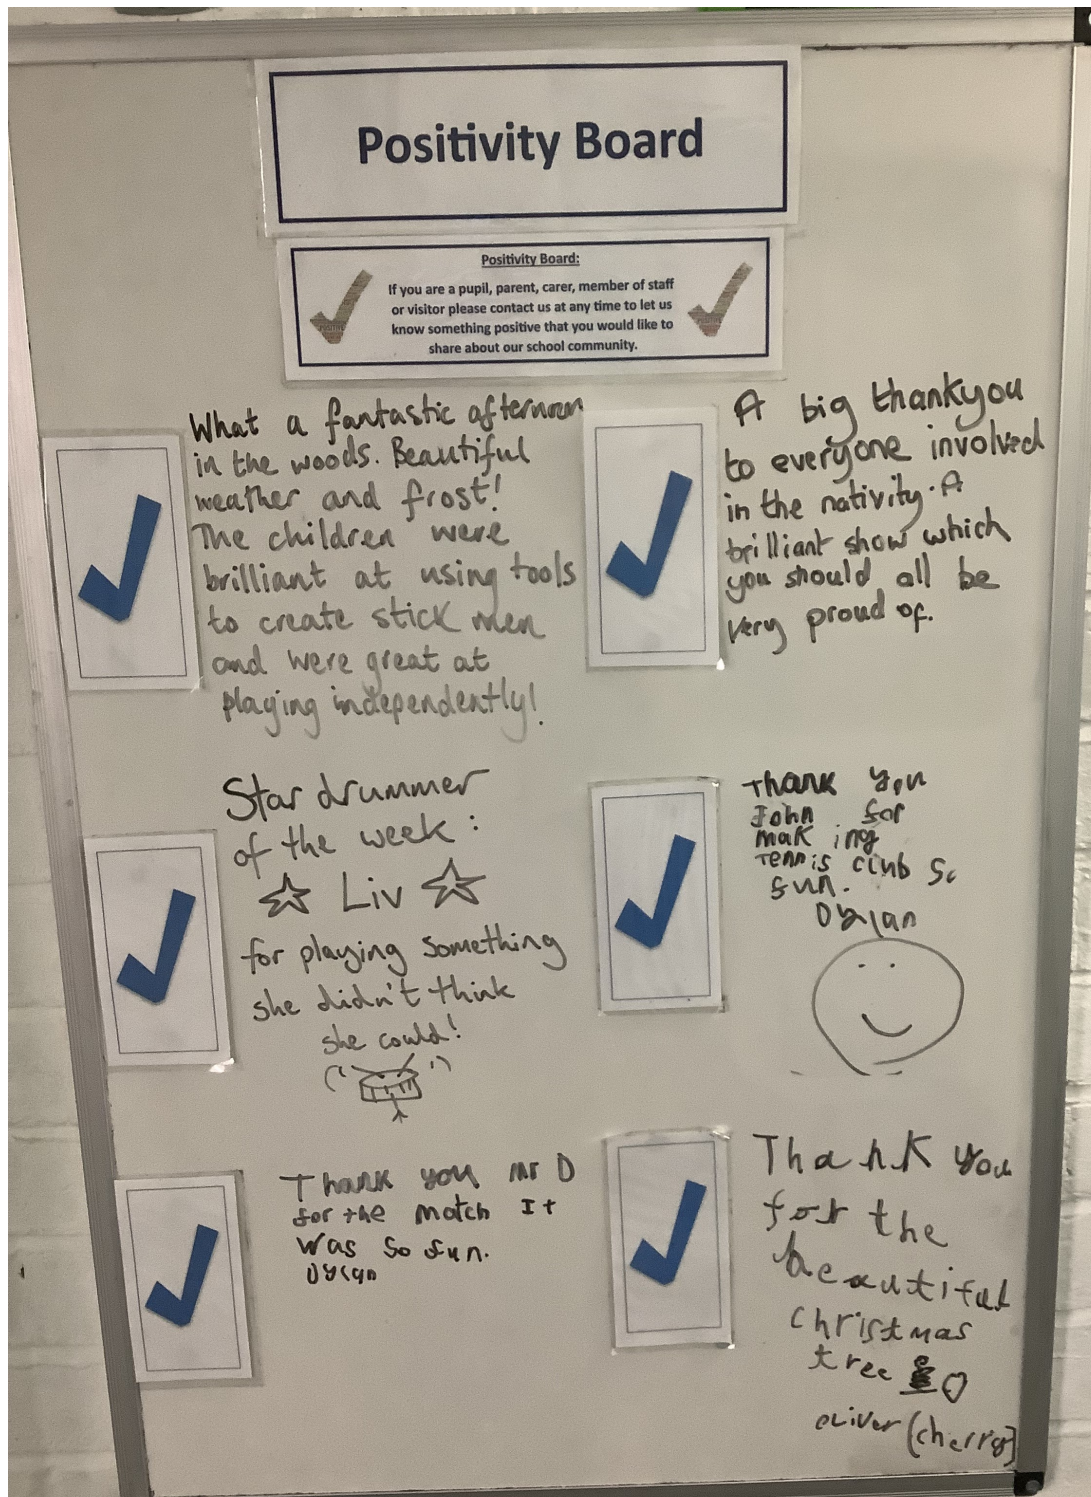 Positivity Board
Positivity Board:
If you are a pupil, parent, carer, member of staff
or visitor please contact us at any time to let us
know something positive that you would like to
share about our school community.
What a fantastic afternoon
in the woods. Beautiful
weather and frost!
The children were
brilliant at using tools
to create stick men
and were great at
playing independently!
A big thankyou
to everyone involved
in the nativity. A
brilliant show which
you should all be
very proud of.
Star drummer
of the week:
Liv
for playing something
she didn't think
she could!
Thank you
John for
making
Tennis club so
fun.
Dylan
Thank you Mr D
for the match It
was so fun.
Dylan
Thank you
for the
beautiful
christmas
tree
oliver (cherry)